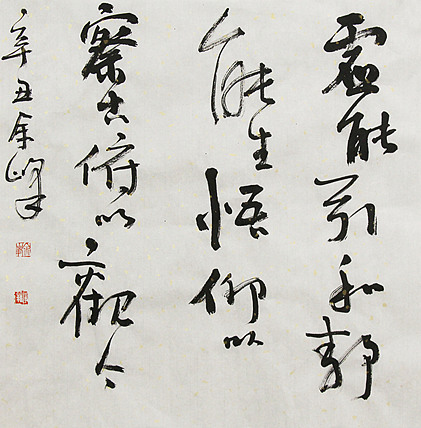 虚能引和静
能生悟仰以
察古俯以观今
辛丑余峰